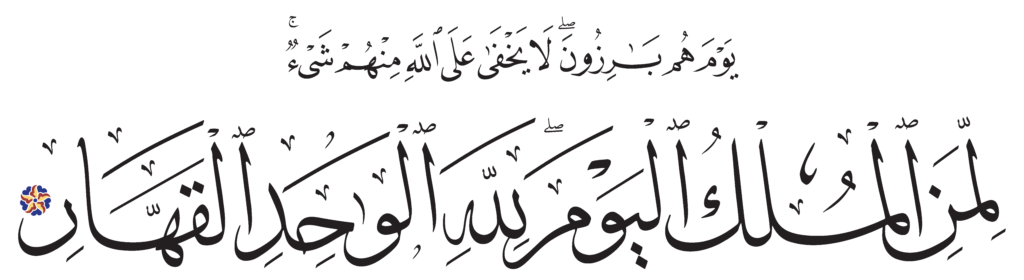 يَوْمَ هُم بَـٰرِزُونَ ۖ لَا يَخْفَىٰ عَلَى ٱللَّهِ مِنْهُمْ شَىْءٌ ۚ
لِّمَنِ ٱلْمُلْكُ ٱلْيَوْمَ ۖ لِلَّهِ ٱلْوَٰحِدِ ٱلْقَهَّارِ